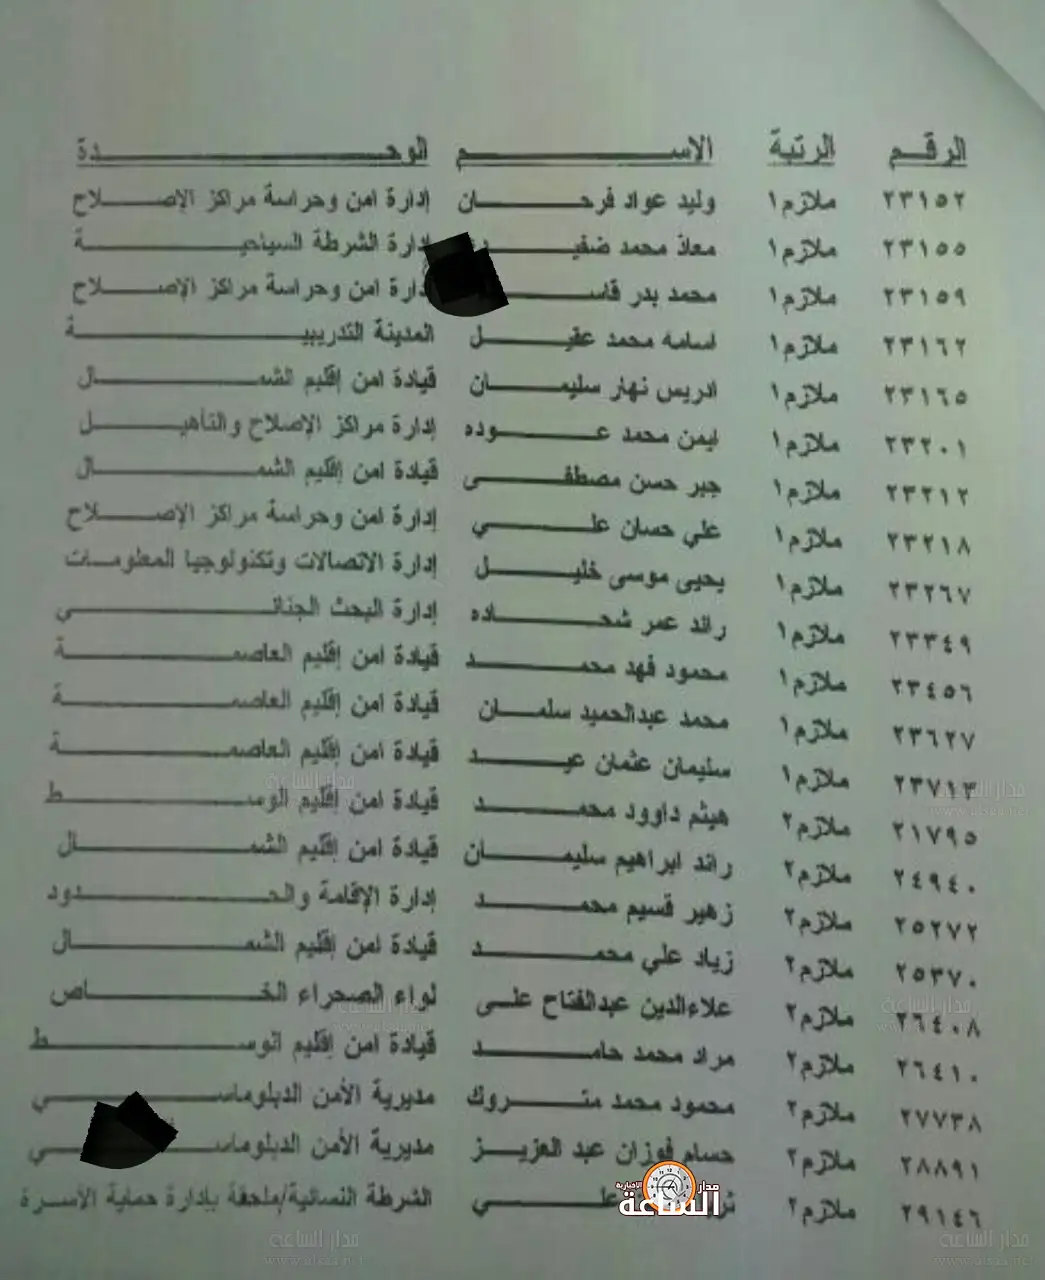 الرقم الرتبة الاسم الوحدة
٢٣١٥٢ ملازم١ وليد عواد فرحان إدارة امن وحراسة مراكز الإصلاح
٢٣١٥٥ ملازم١ معاذ محمد إدارة الشرطة السياحية
٢٣١٥٩ ملازم١ محمد بدر إدارة امن وحراسة مراكز الإصلاح
٢٣١٦٢ ملازم١ اسامه محمد عقيل المدينة التدريبية
٢٣١٦٥ ملازم١ ادريس نهار سليمان قيادة امن إقليم الشمال
٢٣٢٠١ ملازم١ ايمن محمد عوده إدارة مراكز الإصلاح والتأهيل
٢٣٢١٢ ملازم١ جبر حسن مصطفى قيادة امن إقليم الشمال
٢٣٢١٨ ملازم١ علي حسان علي إدارة امن وحراسة مراكز الإصلاح
٢٣٢٦٧ ملازم١ يحيى موسى خليل إدارة الاتصالات وتكنولوجيا المعلومات
٢٣٣٤٩ ملازم١ رائد عمر شحاده إدارة البحث الجنائي
٢٣٤٥٦ ملازم١ محمود فهد محمد قيادة امن إقليم العاصمة
٢٣٦٢٧ ملازم١ محمد عبدالحميد سلمان قيادة امن إقليم العاصمة
٢٣٧١٣ ملازم١ سليمان عثمان عيد قيادة امن إقليم العاصمة
٢١٧٩٥ ملازم٢ هيثم داوود محمد قيادة امن إقليم الوسط
٢٤٩٤٠ ملازم٢ رائد ابراهيم سليمان قيادة امن إقليم الشمال
٢٥٢٧٢ ملازم٢ زهير قسيم محمد إدارة الإقامة والحدود
٢٥٣٧٠ ملازم٢ زياد علي محمد قيادة امن إقليم الشمال
٢٦٤٠٨ ملازم٢ علاءالدين عبدالفتاح على لواء الصحراء الخاص
٢٦٤١٠ ملازم٢ مراد محمد حامد قيادة امن إقليم الوسط
٢٧٧٣٨ ملازم٢ محمود محمد متروك مديرية الأمن الدبلوماسي
٢٨٨٩١ ملازم٢ حسام فوزان عبد العزيز مديرية الأمن الدبلوماسي
٢٩١٤٦ ملازم٢ علي الشرطة النسائية/ملحقة بإدارة حماية الأسرة
مدار الساعة الاخبارية